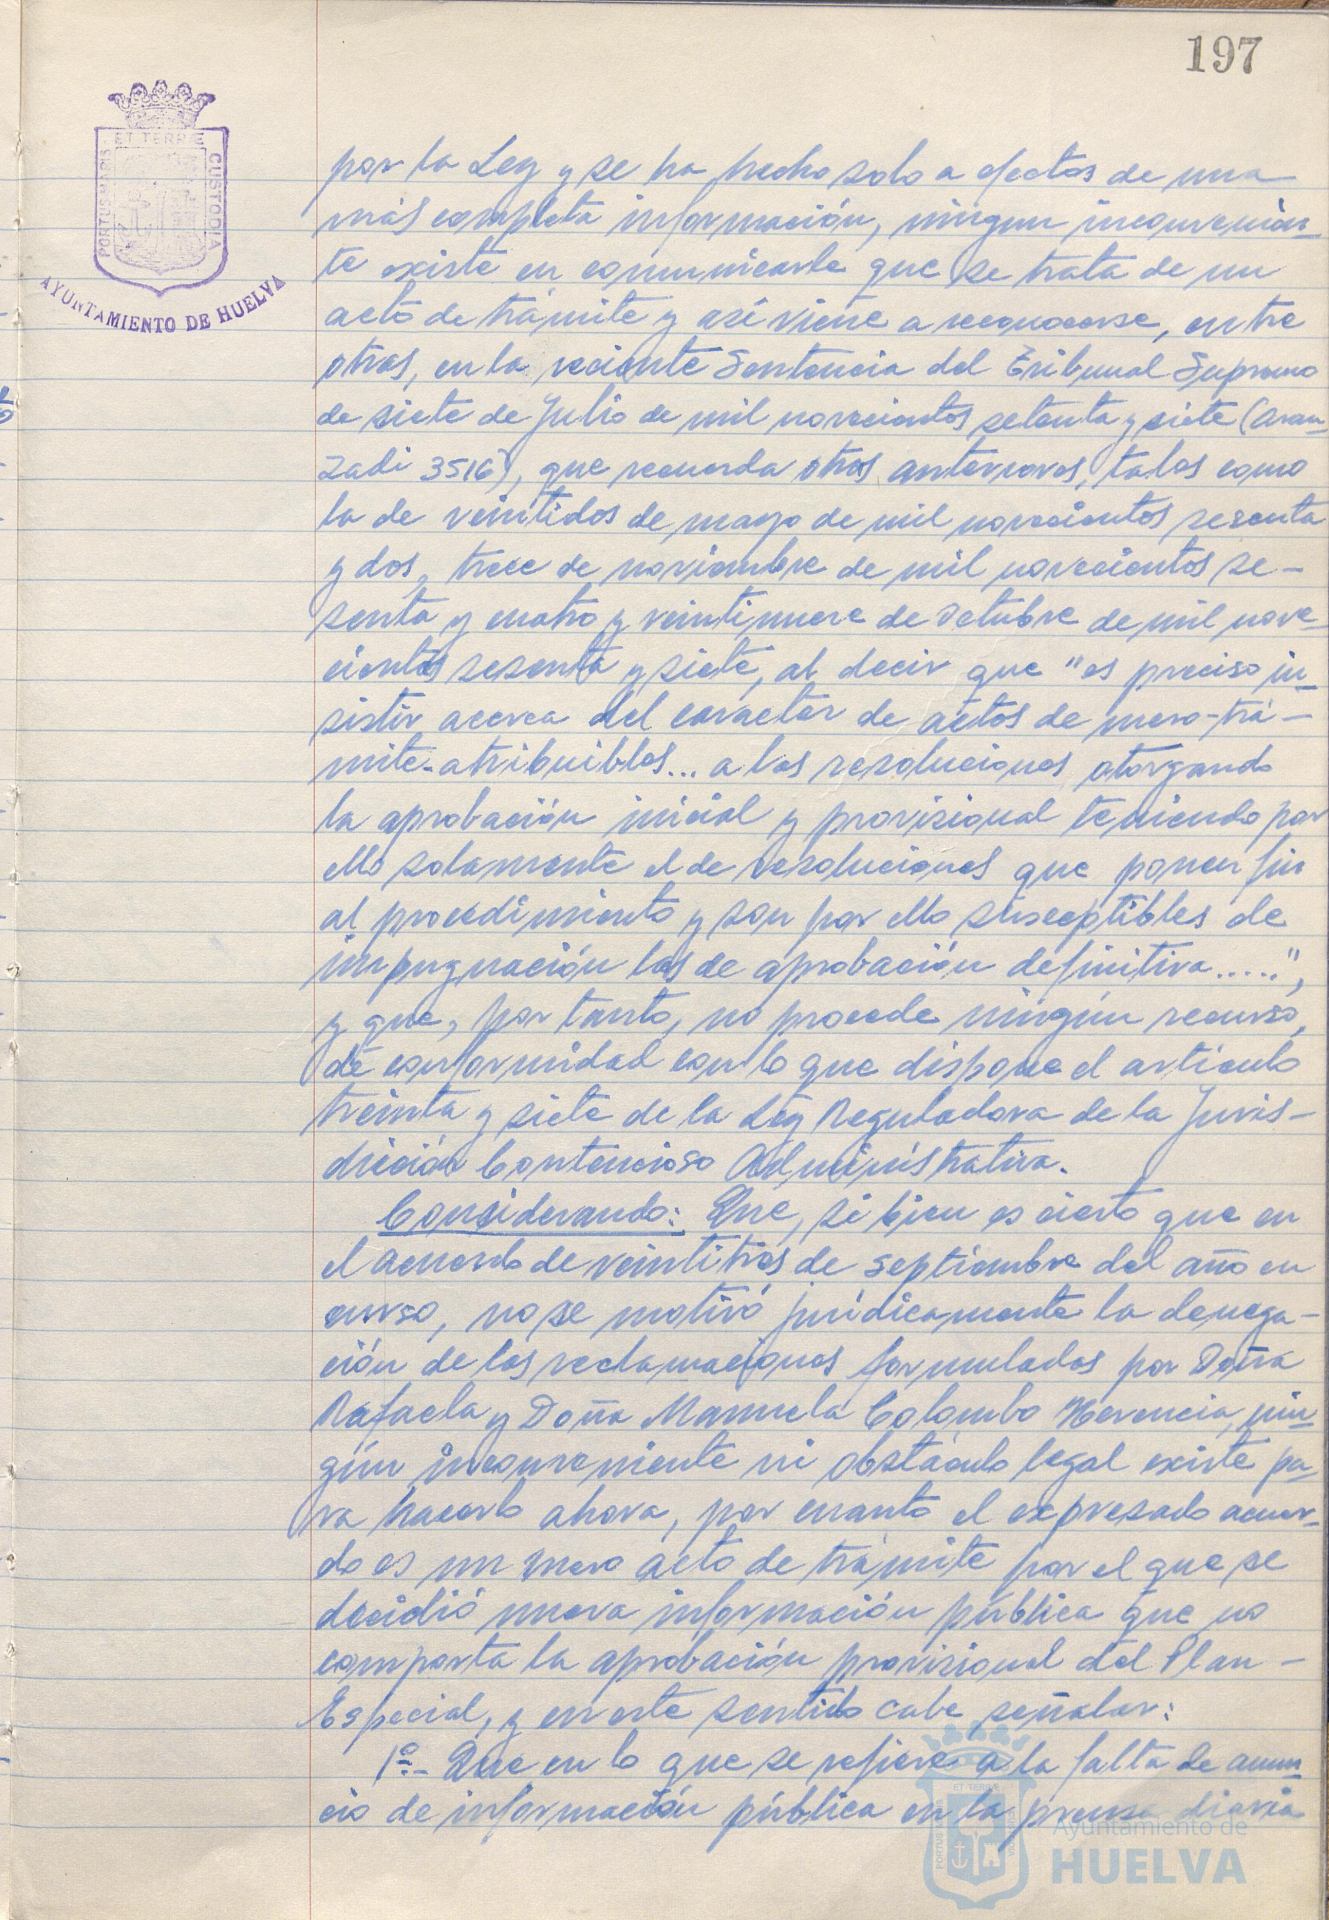 197
ET TERRÆ
PORTUS MARIS
CUSTODIA
AYUNTAMIENTO DE HUELVA
por la Ley y se ha hecho solo a efectos de una
más completa información, ningun inconvenien-
te existe en comunicarle que se trata de un
acto de trámite y asi viene a reconocerse, entre
otras, en la reciente Sentencia del Tribunal Supremo
de siete de Julio de mil novecientos setenta y siete (Aran-
zadi 3516), que recuerda otras anteriores, tales como
la de veintidos de mayo de mil novecientos sesenta
y dos, trece de noviembre de mil novecientos se-
senta y cuatro y veintinueve de Octubre de mil nove-
cientos sesenta y siete, al decir que "es preciso in-
sistir acerca del caracter de actos de mero-trá-
mite-atribuibles... a las resoluciones otorgando
la aprobación inicial y provisional teniendo por
ello solamente el de resoluciones que ponen fin
al procedimiento y son por ello susceptibles de
impugnación las de aprobación definitiva.....",
y que, por tanto, no procede ningún recurso,
de conformidad con lo que dispone el articulo
treinta y siete de la Ley Reguladora de la Juris-
dicción Contencioso Administrativa.
Considerando: Que, si bien es cierto que en
el acuerdo de veintitres de septiembre del año en
curso, no se motivó jurídicamente la denega-
ción de las reclamaciones formuladas por Doña
Rafaela y Doña Manuela Colombo Herencia, nin-
gún inconveniente ni obstáculo legal existe pa-
ra hacerlo ahora, por cuanto el expresado acuer-
do es un mero acto de trámite por el que se
decidió nueva información pública que no
comporta la aprobación provisional del Plan-
Especial, y en este sentido cabe señalar:
1º.- Que en lo que se refiere a la falta de anun-
cio de información pública en la prensa diaria
ET TERRÆ
PORTUS MARIS
Ayuntamiento de
HUELVA